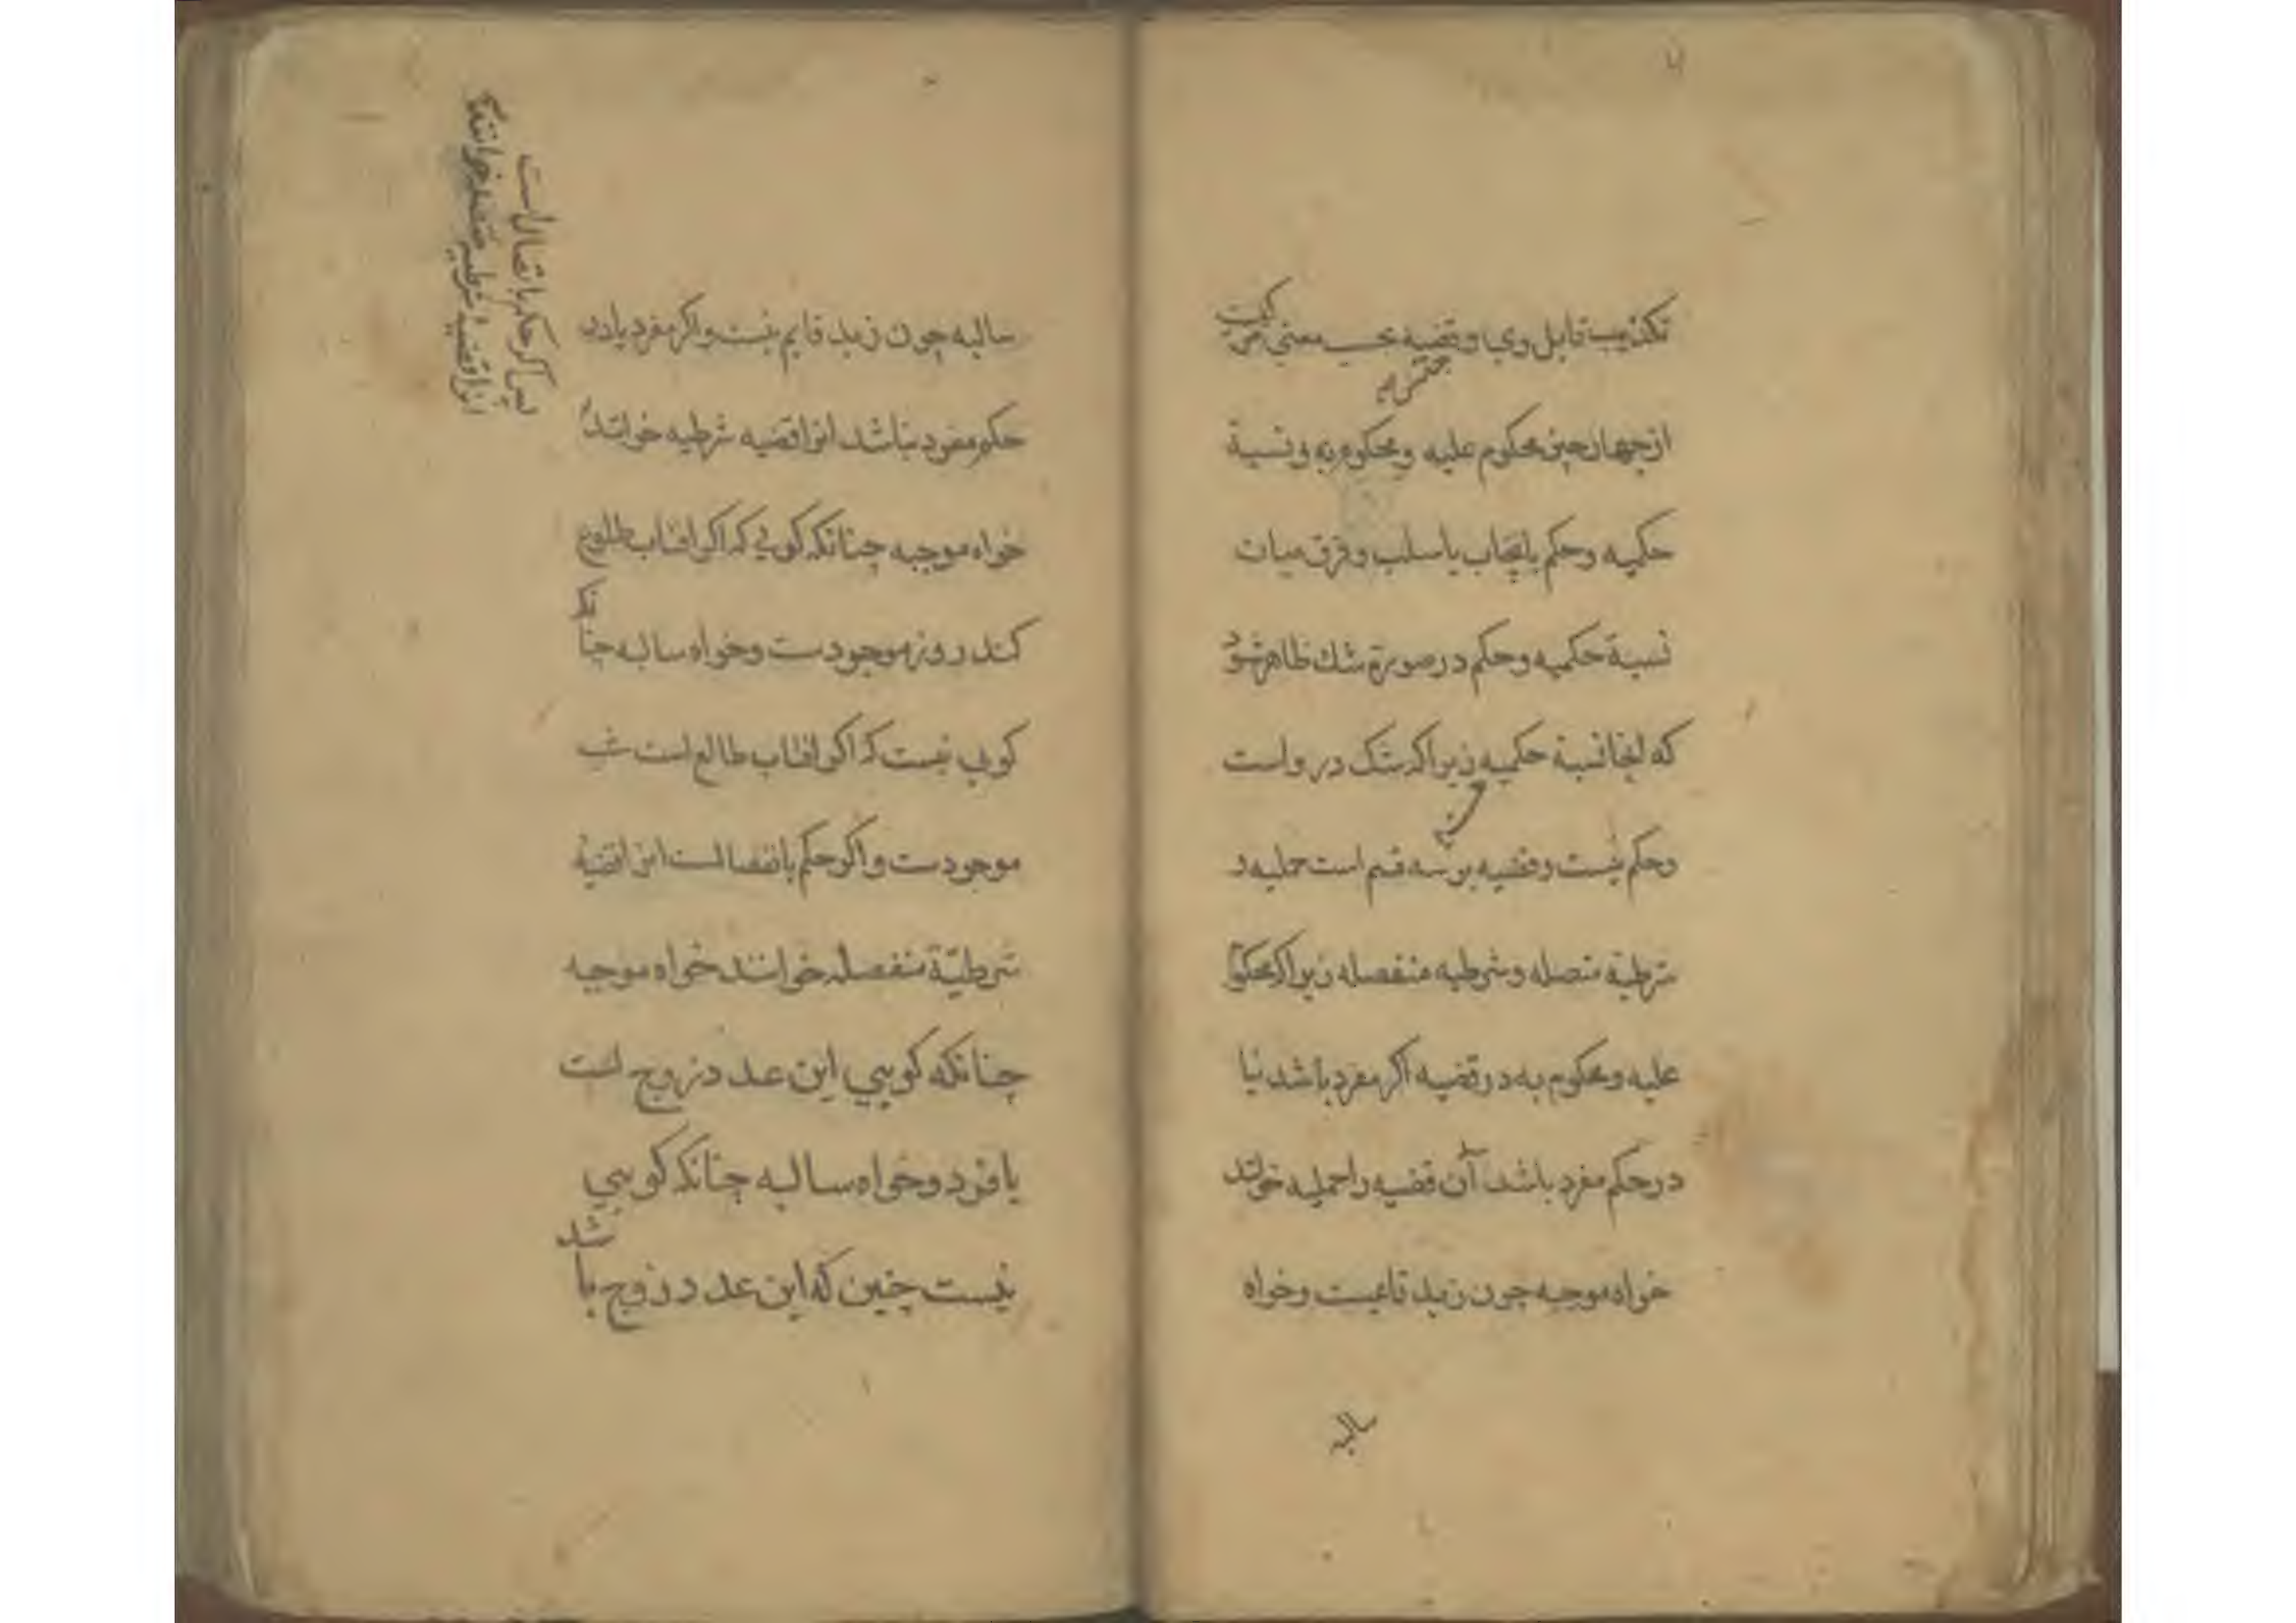 تکذیب قایل وی و قضیه بحسب معنی مرکبست
از چهار چیز محکوم علیه و محکوم به و نسبة
حکمیه و حکم بایجاب یا سلب و فرق میان
نسبة حکمیه و حکم در صورة شك ظاهر شود
که اینجا نسبة حکمیه زیراکه شک در و است
و حکم نیست و قضیه بر سه قسم است حملیه و
شرطیة متصله و شرطیه منفصله زیراکه محکوم
علیه و محکوم به در قضیه اکر مفرد باشد یا
در حکم مفرد باشد آن قضیه را حملیه خوانند
خواه موجبه چون زید قایمست و خواه
سالبه
سالبه چون زید قایم نیست و اکر مفرد یا در
حکم مفرد نباشد انرا قضیه شرطیه خوانند
پس اکر حکم باتصال است
انرا قضیهٔ شرطیه متصله خوانند
خواه موجبه چنانکه کویی که اکر افتاب طلوع
کند روز موجودست و خواه سالبه چنانکه
کویی نیست که اکر افتاب طالع است شب
موجودست و اکر حکم بانفصالست انرا قضیهٔ
شرطیّة منفصله خوانند خواه موجبه
چنانکه کویی این عدد زوج است
یا فرد و خواه سالبه چنانکه کویی
نیست چنین که این عدد زوج باشد